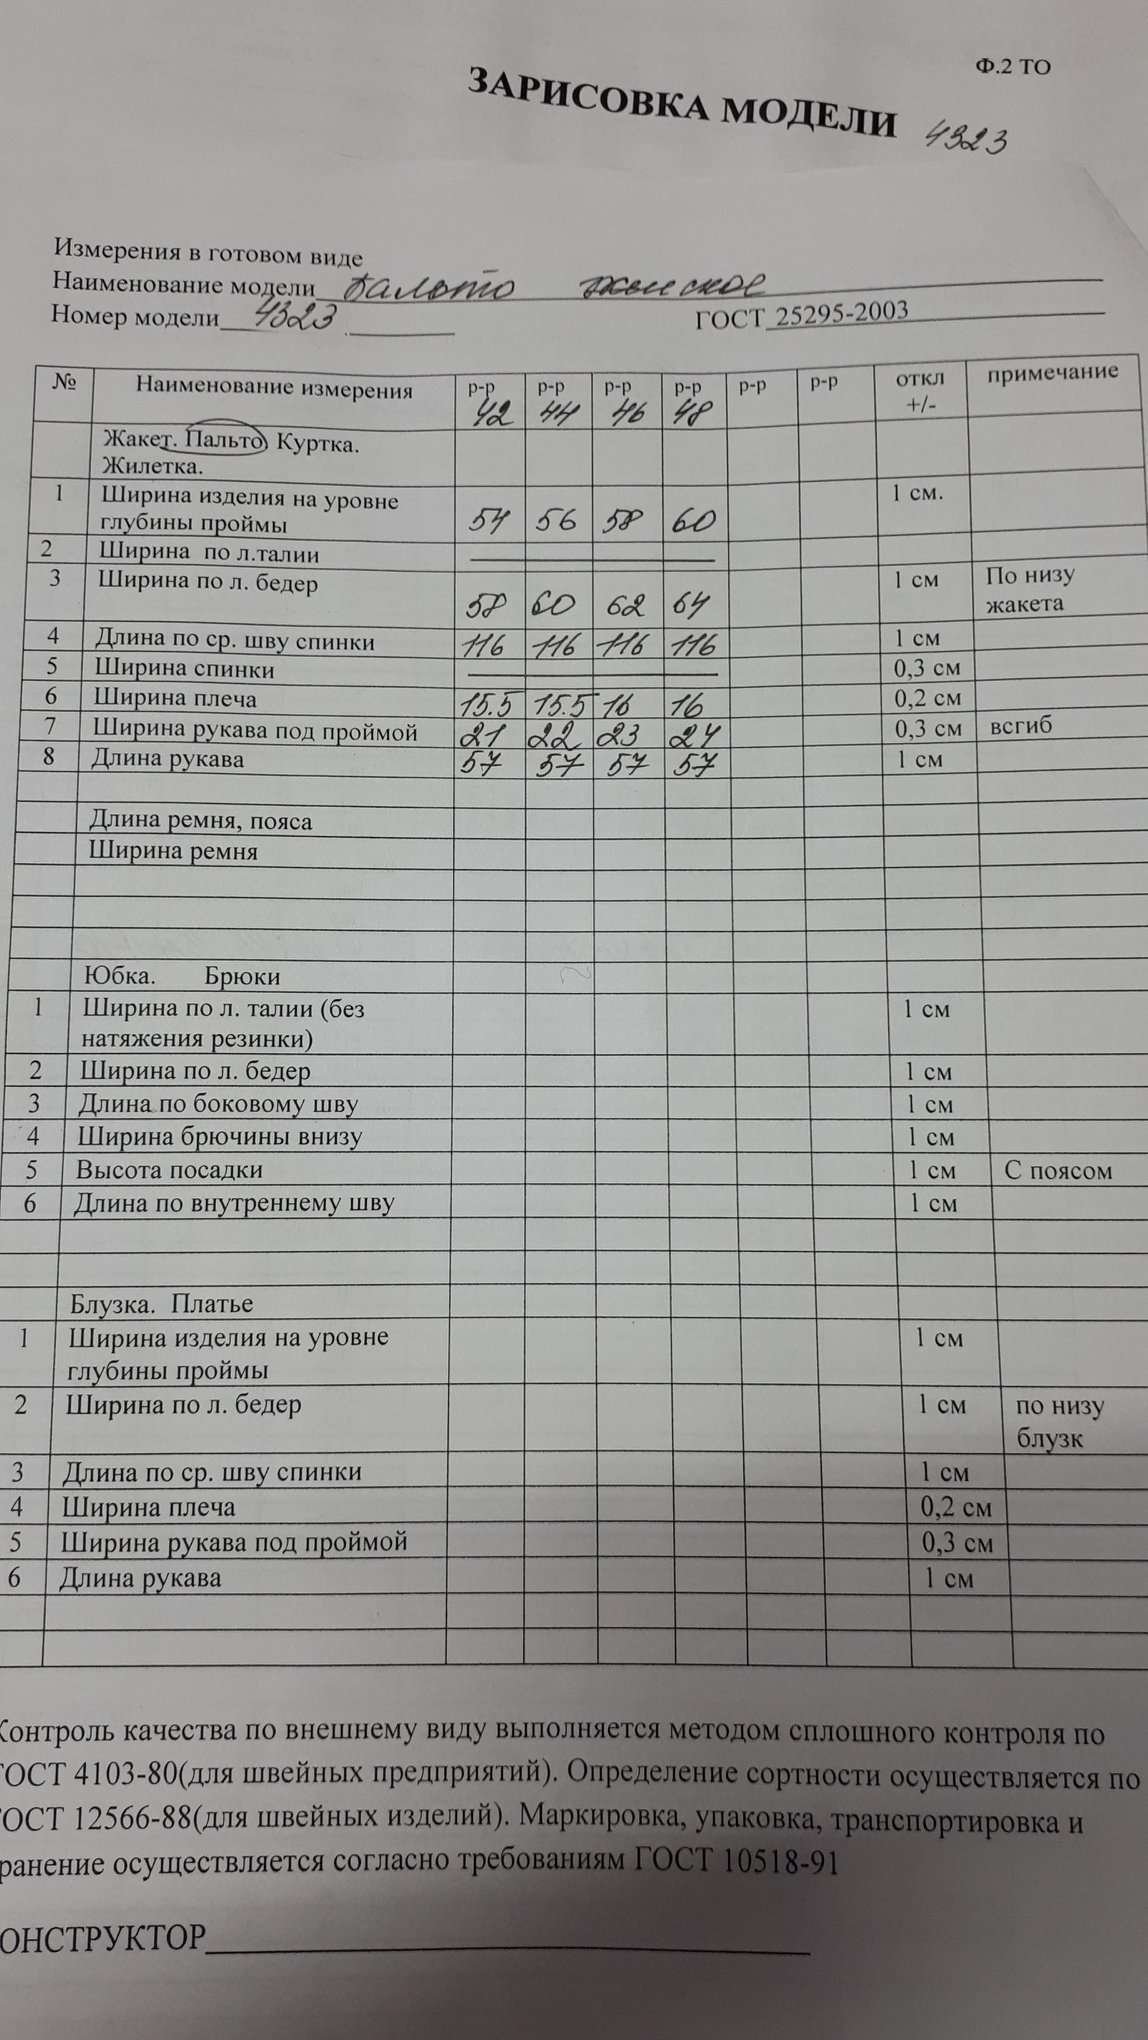 Ф.2 ТО
ЗАРИСОВКА МОДЕЛИ 4323
Измерения в готовом виде
Наименование модели Пальто женское
Номер модели 4323 ГОСТ 25295-2003
№ Наименование измерения р-р 42 р-р 44 р-р 46 р-р 48 р-р р-р откл +/- примечание
Жакет. Пальто. Куртка.
Жилетка.
1 Ширина изделия на уровне глубины проймы 54 56 58 60 1 см.
2 Ширина по л.талии
3 Ширина по л. бедер 58 60 62 64 1 см По низу жакета
4 Длина по ср. шву спинки 116 116 116 116 1 см
5 Ширина спинки 0,3 см
6 Ширина плеча 15.5 15.5 16 16 0,2 см
7 Ширина рукава под проймой 21 22 23 24 0,3 см всгиб
8 Длина рукава 57 57 57 57 1 см
Длина ремня, пояса
Ширина ремня
Юбка. Брюки
1 Ширина по л. талии (без натяжения резинки) 1 см
2 Ширина по л. бедер 1 см
3 Длина по боковому шву 1 см
4 Ширина брючины внизу 1 см
5 Высота посадки 1 см С поясом
6 Длина по внутреннему шву 1 см
Блузка. Платье
1 Ширина изделия на уровне глубины проймы 1 см
2 Ширина по л. бедер 1 см по низу блузк
3 Длина по ср. шву спинки 1 см
4 Ширина плеча 0,2 см
5 Ширина рукава под проймой 0,3 см
6 Длина рукава 1 см
Контроль качества по внешнему виду выполняется методом сплошного контроля по
ГОСТ 4103-80(для швейных предприятий). Определение сортности осуществляется по
ГОСТ 12566-88(для швейных изделий). Маркировка, упаковка, транспортировка и
ранение осуществляется согласно требованиям ГОСТ 10518-91
ОНСТРУКТОР